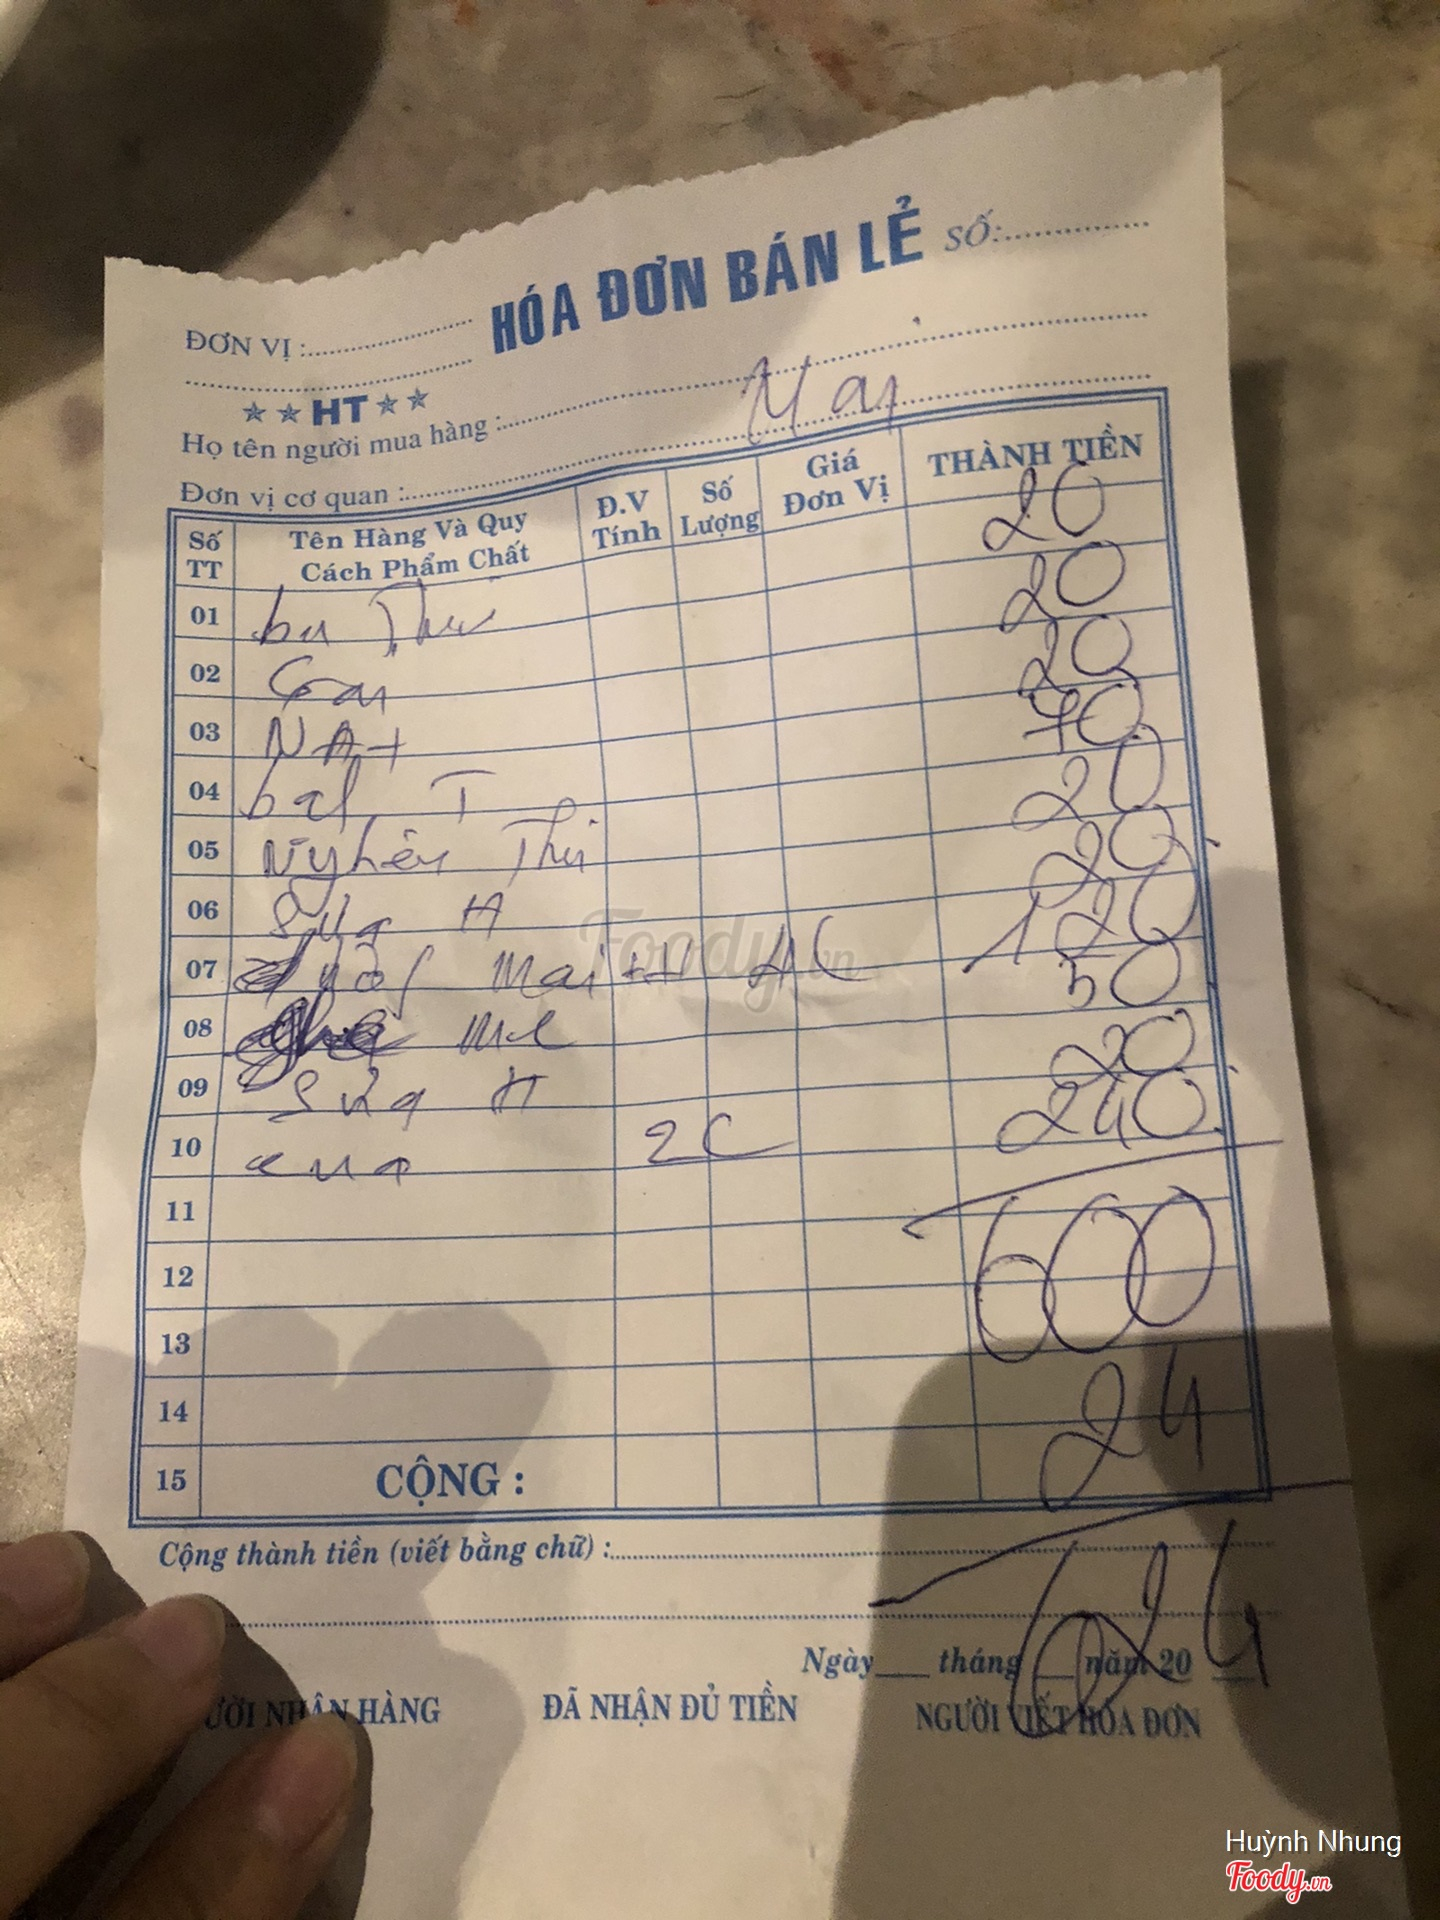 HÓA ĐƠN BÁN LẺ SỐ:
ĐƠN VỊ :
★ ★ HT ★ ★
Họ tên người mua hàng :
Mai
Đơn vị cơ quan :
Số TT Tên Hàng Và Quy Cách Phẩm Chất Đ.V Tính Số Lượng Giá Đơn Vị THÀNH TIỀN
20
01 20
02 20
03 70
04 20
05 Nghêu 20
06 Sữa H 120
07 50
08 me 20
09 Sữa H 240
10 cua 2C
11
12 600
13
14 24
15 CỘNG :
Cộng thành tiền (viết bằng chữ) :
624
Ngày tháng năm 20
ƯỜI NHẬN HÀNG ĐÃ NHẬN ĐỦ TIỀN NGƯỜI VIẾT HÓA ĐƠN
Foody.vn
Huỳnh Nhung
Foody.vn